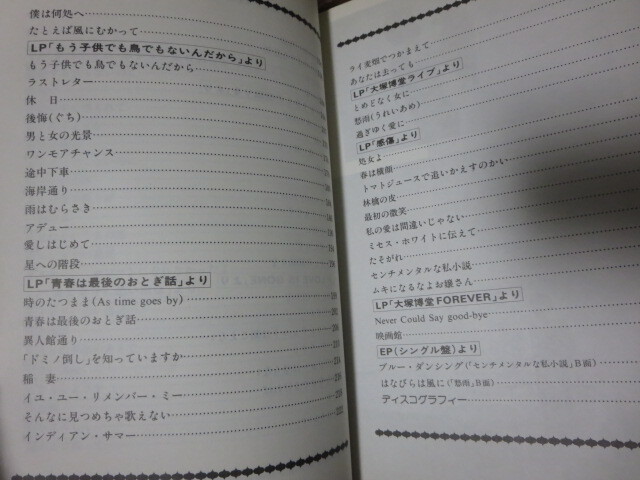 僕は何処へ
たとえば風にむかって
LP「もう子供でも鳥でもないんだから」より
もう子供でも鳥でもないんだから
ラストレター
休　日
後悔(ぐち)
男と女の光景
ワンモアチャンス
途中下車
海岸通り
雨はむらさき
アデュー
愛しはじめて
星への階段
LP「青春は最後のおとぎ話」より
時のたつまま(As time goes by)
青春は最後のおとぎ話
異人館通り
「ドミノ倒し」を知っていますか
稲　妻
イユ・ユー・リメンバー・ミー
そんなに見つめちゃ歌えない
インディアン・サマー
ライ麦畑でつかまえて
あなたは去っても
LP「大塚博堂ライブ」より
とめどなく女に
愁雨(うれいあめ)
過ぎゆく愛に
LP「感傷」より
処女よ
春は横顔
トマトジュースで追いかえすのかい
林檎の皮
最初の微笑
私の愛は間違いじゃない
ミセス・ホワイトに伝えて
たそがれ
センチメンタルな私小説
ムキになるなよお嬢さん
LP「大塚博堂 FOREVER」より
Never Could Say good-bye
映画館
EP(シングル盤)より
ブルー・ダンシング(「センチメンタルな私小説」B面)
はなびらは風に(「愁雨」B面)
ディスコグラフィー